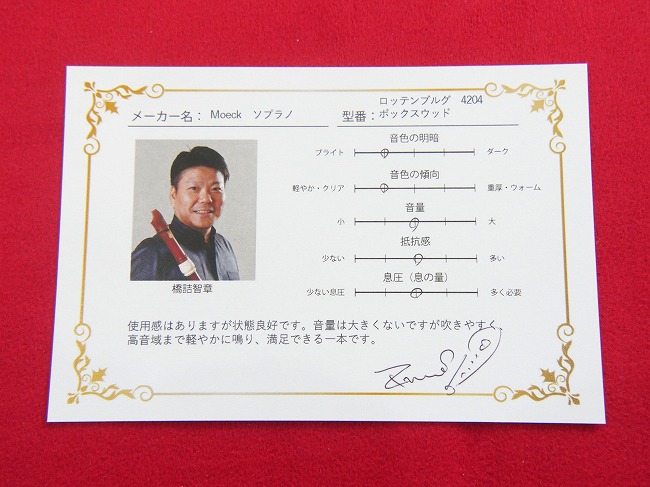 ロッテンブルグ 4204
メーカー名： Moeck ソプラノ 型番：ボックスウッド
音色の明暗
ブライト ダーク
音色の傾向
軽やか・クリア 重厚・ウォーム
音量
小 大
抵抗感
少ない 多い
息圧（息の量）
少ない息圧 多く必要
橋詰智章
使用感はありますが状態良好です。音量は大きくないですが吹きやすく、
高音域まで軽やかに鳴り、満足できる一本です。